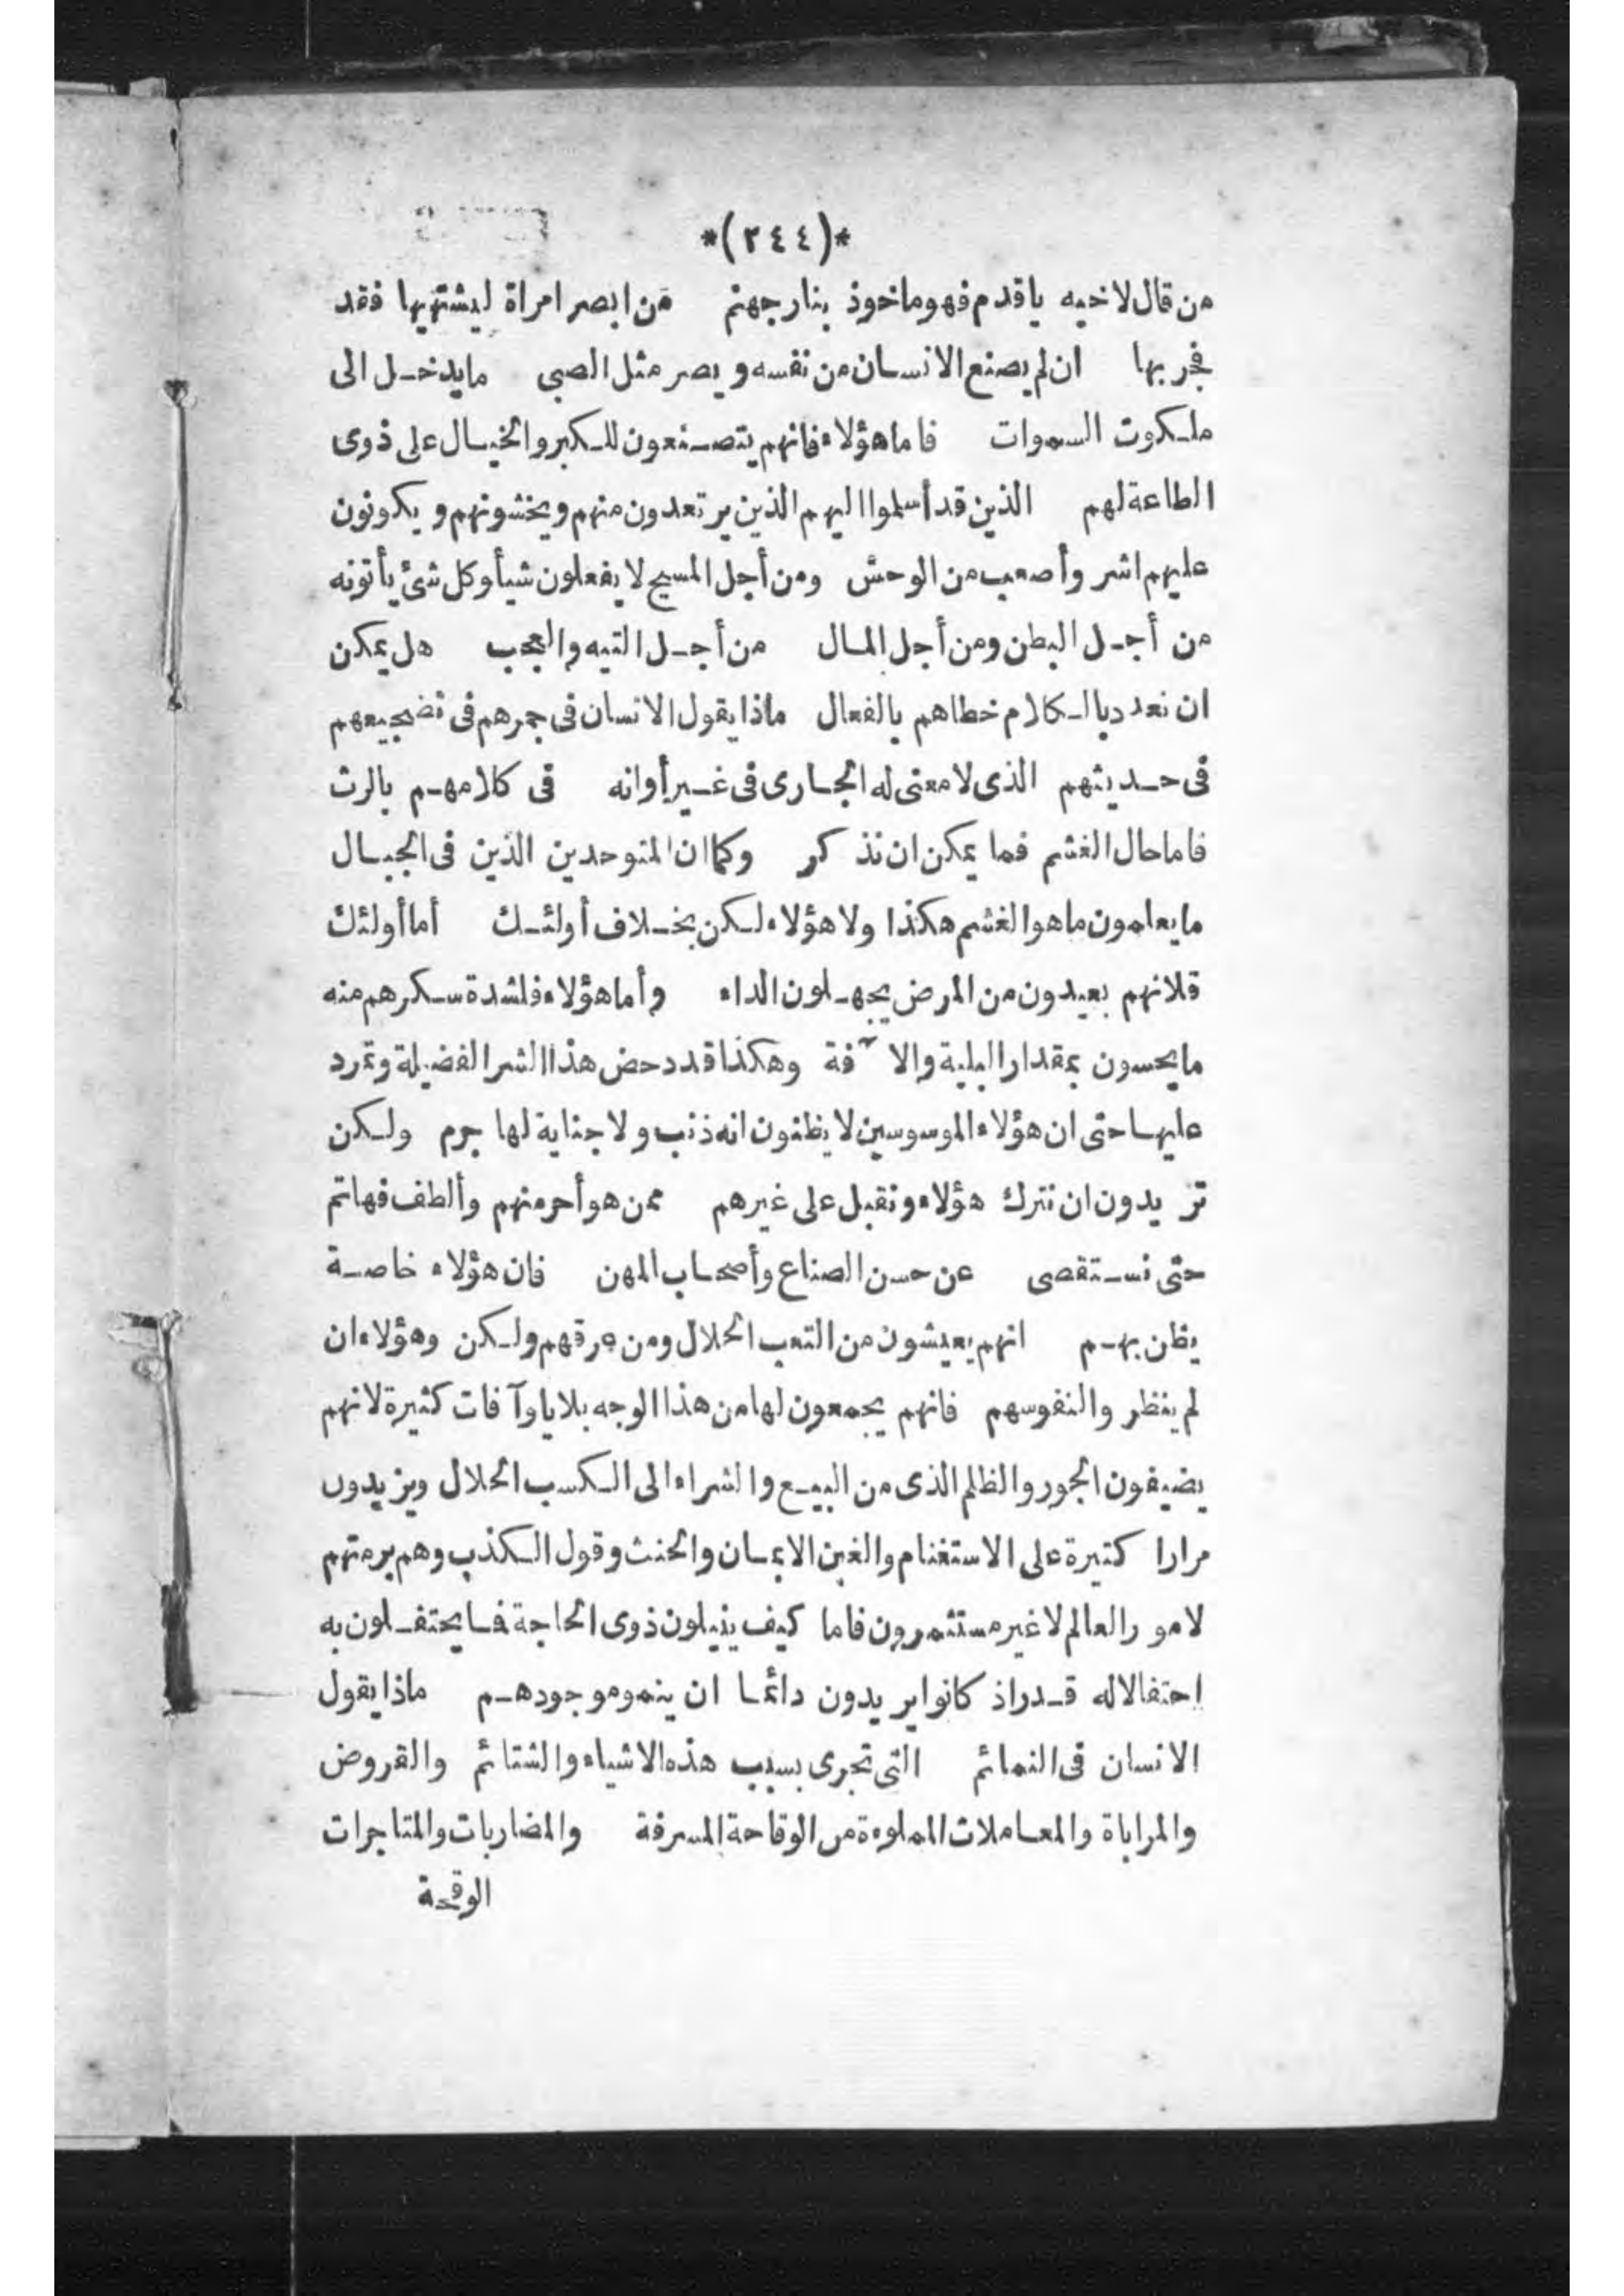 *(٢٤٤)*
من قال لاخيه ياقدم فهوماخوذ بنارجهنم من ابصر امراة ليشتهيها فقد
فجربها ان لم يصنع الانسان من نفسه ويصر مثل الصبى مايدخل الى
ملكوت السموات فاماهؤلاء فانهم يتصنعون للكبر والخيال على ذوى
الطاعة لهم الذين قد أسلموا اليهم الذين يرتعدون منهم ويخشونهم ويكونون
عليهم اشر وأصعب من الوحش ومن أجل المسيح لايفعلون شيأ وكل شئ يأتونه
من أجل البطن ومن أجل المال من أجل التيه والعجب هل يمكن
ان نعدد بالكلام خطاهم بالفعال ماذا يقول الانسان فى جمرهم فى تضجيعهم
فى حديثهم الذى لامعنى له الجارى فى غير أوانه فى كلامهم بالرث
فاماحال الغشم فما يمكن ان نذ كر وكما ان المتوحدين الذين فى الجبال
مايعلمون ماهو الغشم هكذا ولاهؤلاء لكن بخلاف أولئك أما أولئك
فلانهم بعيدون من المرض يجهلون الداء وأماهؤلاء فلشدة سكرهم منه
مايحسون بمقدار البلية والآفة وهكذا قد دحض هذا الشر الفضيلة وتمرد
عليها حتى ان هؤلاء الموسوسين لايظنون انه ذنب ولا جناية لها جرم ولكن
تريدون ان نترك هؤلاء ونقبل على غيرهم ممن هو أحر منهم وألطف فهاتم
حتى نستقصى عن حسن الصناع وأصحاب المهن فان هؤلاء خاصة
يظن بهم انهم يعيشون من التعب الحلال ومن عرقهم ولكن وهؤلاء ان
لم ينظر والنفوسهم فانهم يجمعون لها من هذا الوجه بلايا وآفات كثيرة لانهم
يضيفون الجور والظلم الذى من البيع والشراء الى الكسب الحلال ويزيدون
مرارا كثيرة على الاستغنام والغبن الايمان والحنث وقول الكذب وهم برمتهم
لامور العالم لاغير مستثمرون فاما كيف ينيلون ذوى الحاجة فما يحتفلون به
احتفالاله قدر اذ كانوا يريدون دائما ان ينمو موجودهم ماذا يقول
الانسان فى النمائم التى تجرى بسبب هذه الاشياء والشتائم والقروض
والمراباة والمعاملات المملوءة من الوقاحة المسرفة والمضاربات والمتاجرات
الوقحة